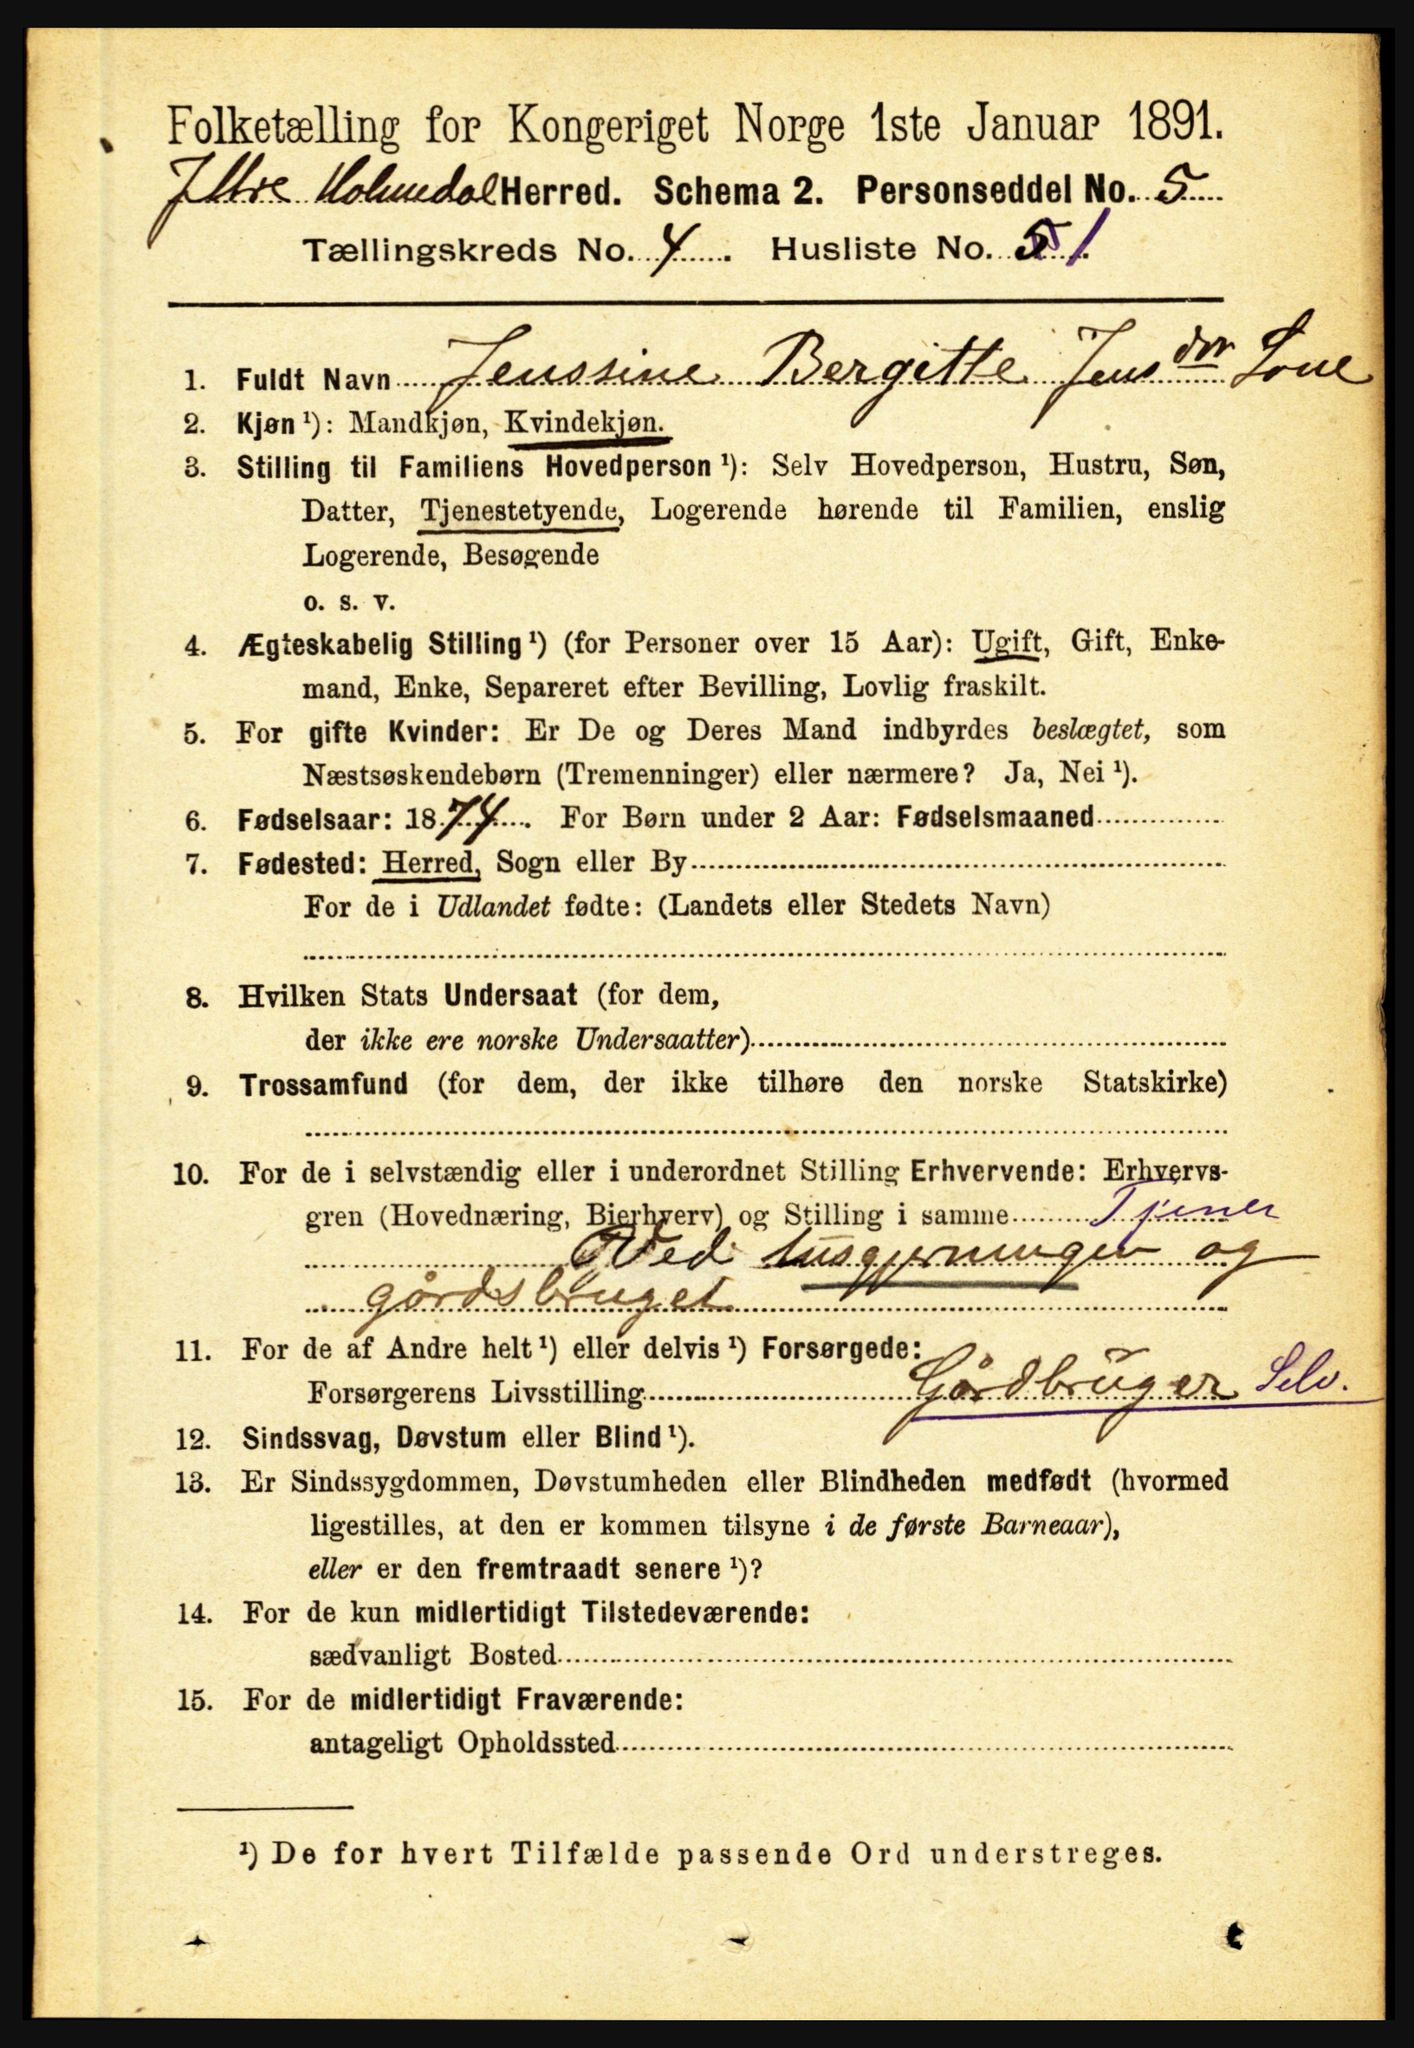 Folketælling for Kongeriget Norge 1ste Januar 1891.
Yttre Holmedal Herred. Schema 2. Personseddel No. 5
Tællingskreds No. 4. Husliste No. 51.
1. Fuldt Navn Jenssine Bergitte Jensdtr
2. Kjøn ¹): Mandkjøn, Kvindekjøn.
3. Stilling til Familiens Hovedperson ¹): Selv Hovedperson, Hustru, Søn,
Datter, Tjenestetyende, Logerende hørende til Familien, enslig
Logerende, Besøgende
o. s. v.
4. Ægteskabelig Stilling ¹) (for Personer over 15 Aar): Ugift, Gift, Enke-
mand, Enke, Separeret efter Bevilling, Lovlig fraskilt.
5. For gifte Kvinder: Er De og Deres Mand indbyrdes beslægtet, som
Næstsøskendebørn (Tremenninger) eller nærmere? Ja, Nei ¹).
6. Fødselsaar: 1874. For Børn under 2 Aar: Fødselsmaaned
7. Fødested: Herred, Sogn eller By
For de i Udlandet fødte: (Landets eller Stedets Navn)
8. Hvilken Stats Undersaat (for dem,
der ikke ere norske Undersaatter)
9. Trossamfund (for dem, der ikke tilhøre den norske Statskirke)
10. For de i selvstændig eller i underordnet Stilling Erhvervende: Erhvervs-
gren (Hovednæring, Bierhverv) og Stilling i samme Tjener
Ved husgjerningen og
gårdsbruget
11. For de af Andre helt ¹) eller delvis ¹) Forsørgede:
Forsørgerens Livsstilling Gårdbruger Selv.
12. Sindssvag, Døvstum eller Blind ¹).
13. Er Sindssygdommen, Døvstumheden eller Blindheden medfødt (hvormed
ligestilles, at den er kommen tilsyne i de første Barneaar),
eller er den fremtraadt senere ¹)?
14. For de kun midlertidigt Tilstedeværende:
sædvanligt Bosted
15. For de midlertidigt Fraværende:
antageligt Opholdssted
¹) De for hvert Tilfælde passende Ord understreges.